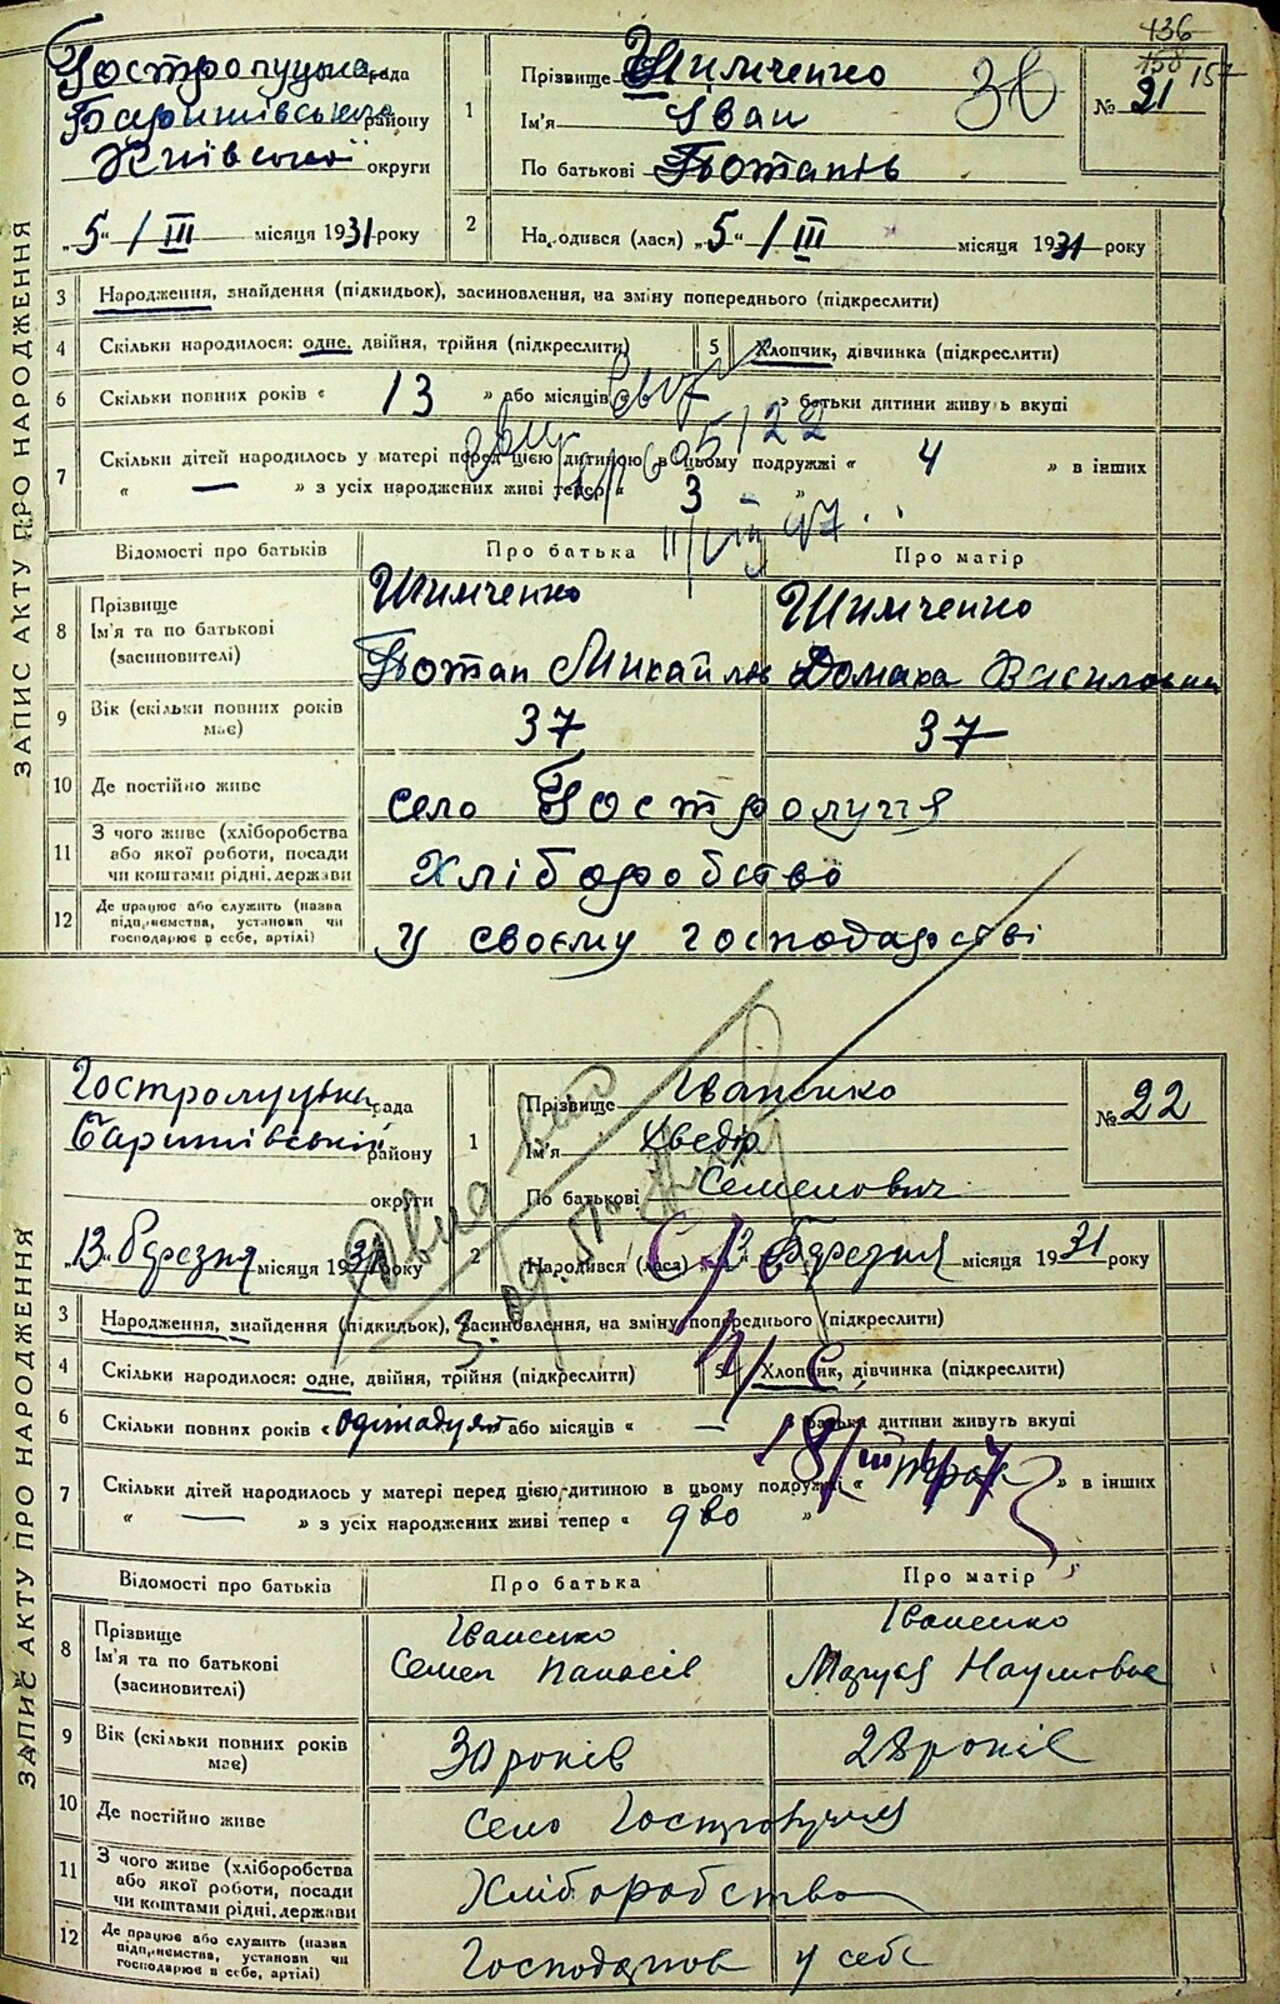 136
158 157
Гостролуцька рада
Баришівського району
Київської округи
"5" / III місяця 1931 року
1
Прізвище Шимченко
Ім'я Іван
По батькові Потапів
№ 21
2
Народився (лася) "5" / III місяця 1931 року
ЗАПИС АКТУ ПРО НАРОДЖЕННЯ
3 Народження, знайдення (підкидьок), засиновлення, на зміну попереднього (підкреслити)
4 Скільки народилося: одне, двійня, трійня (підкреслити) 5 Хлопчик, дівчинка (підкреслити)
6 Скільки повних років « 13 » або місяців « » батьки дитини живуть вкупі
7 Скільки дітей народилось у матері перед цією дитиною в цьому подружжі « 4 » в інших
« — » з усіх народжених живі тепер « 3 »
11/VIII 47
Відомості про батьків Про батька Про матір
8 Прізвище
Ім'я та по батькові
(засиновителі)
Шимченко Шимченко
Потап Михайлов Домаха Василовна
9 Вік (скільки повних років має) 37 37
10 Де постійно живе село Гостролуччя
11 З чого живе (хліборобства
або якої роботи, посади
чи коштами рідні, держави
Хліборобство
12 Де працює або служить (назва
підприємства, установи чи
господарює в себе, артілі)
у своєму господарстві
Гостролуцька рада
Баришівський району
округи
"13" березня місяця 1931 року
1
Прізвище Іваненко
Ім'я Хведір
По батькові Семенович
№ 22
2
Народився (лася) "13" березня місяця 1931 року
ЗАПИС АКТУ ПРО НАРОДЖЕННЯ
3 Народження, знайдення (підкидьок), засиновлення, на зміну попереднього (підкреслити)
4 Скільки народилося: одне, двійня, трійня (підкреслити) 5 Хлопчик, дівчинка (підкреслити)
6 Скільки повних років « одінадцять або місяців « — » батьки дитини живуть вкупі
7 Скільки дітей народилось у матері перед цією дитиною в цьому подружжі « » в інших
« — » з усіх народжених живі тепер « дво »
18/III 47
Відомості про батьків Про батька Про матір
8 Прізвище
Ім'я та по батькові
(засиновителі)
Іваненко Іваненко
Семен Панасів Маруся Наумовна
9 Вік (скільки повних років має) 30 років 28 років
10 Де постійно живе село Гостролуччя
11 З чого живе (хліборобства
або якої роботи, посади
чи коштами рідні, держави
Хліборобство
12 Де працює або служить (назва
підприємства, установи чи
господарює в себе, артілі)
Господарює у себе